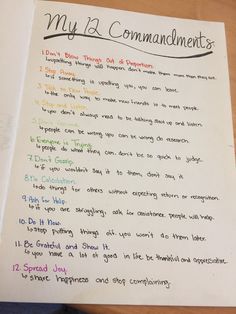 My 12 Commandments
1. Don't Blow Things Out of Proportion.
↳ upsetting things will happen. don't make them more than they are.
2. Stop Away.
↳ if something is upsetting you, you can leave.
3. Talk to New People.
↳ the only way to make new friends is to meet people.
4. Stop and Listen.
↳ you don't always need to be talking. shut up and listen.
5.
↳ people can be wrong. you can be wrong. do research.
6. Everyone is Trying.
↳ people do what they can. don't be so quick to judge.
7. Don't Gossip.
↳ if you wouldn't say it to them, don't say it.
8. No Calculation.
↳ do things for others without expecting return or recognition.
9. Ask for Help.
↳ if you are struggling, ask for assistance. people will help.
10. Do It Now.
↳ stop putting things off. you won't do them later.
11. Be Grateful and Show It.
↳ you have a lot of good in life. be thankful and appreciative.
12. Spread Joy.
↳ share happiness and stop complaining.